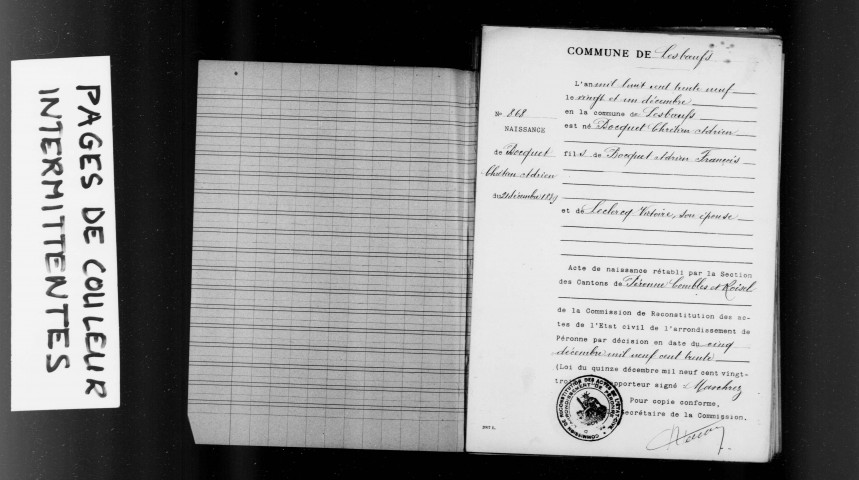 PAGES DE COULEUR
INTERMITTENTES
COMMUNE DE Lesbœufs
L'an mil huit cent trente neuf
le vingt et un décembre
en la commune de Lesbœufs
est né Bocquet Chrétien Adrien
fils de Bocquet Adrien François
et de Leclercq Victoire, son épouse
Acte de naissance rétabli par la Section
des Cantons de Péronne Combles et Roisel
de la Commission de Reconstitution des ac-
tes de l'Etat civil de l'arrondissement de
Péronne par décision en date du cinq
décembre mil neuf cent trente
(Loi du quinze décembre mil neuf cent vingt-
pporteur signé =
Pour copie conforme,
ecrétaire de la Commission,
N° 868
NAISSANCE
de Bocquet
Chrétien Adrien
du 21 décembre 1839
COMMISSION DE RECONSTITUTION DES ACTES DE L'ETAT CIVIL
ARRONDISSEMENT DE PERONNE